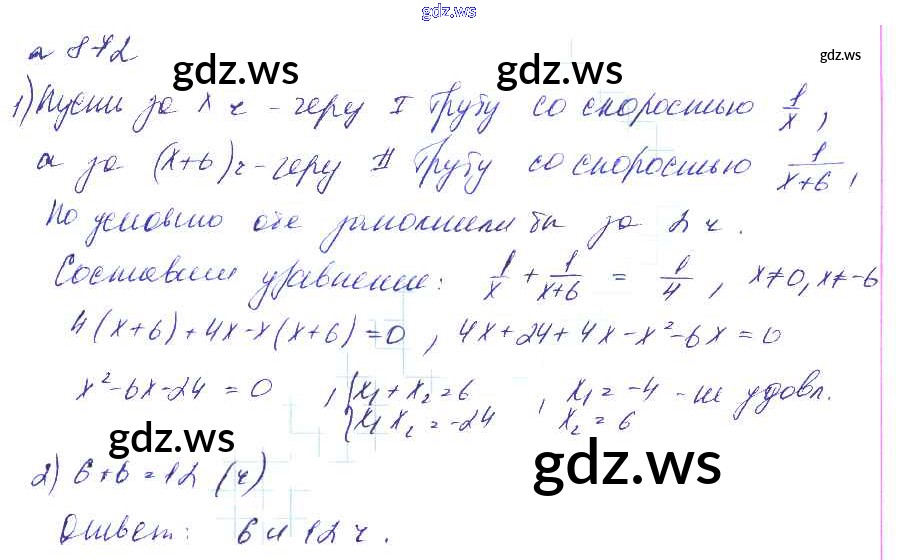 gdz.ws
№ 872
gdz.ws
gdz.ws
1) Пусть за x ч - через I трубу со скоростью 1/x,
а за (x+6) ч - через II трубу со скоростью 1/(x+6),
gdz.ws
gdz.ws
По условию обе заполнили бы за 2 ч.
Составим уравнение: 1/x + 1/(x+6) = 1/4, x≠0, x≠-6
4(x+6)+4x-x(x+6)=0, 4x+24+4x-x²-6x=0
x²-6x-24=0, {x₁+x₂=6 x₁x₂=-24, x₁=-4 - не удовл. x₂=6
gdz.ws
gdz.ws
2) 6+6=12 (ч)
Ответ: 6 и 12 ч.